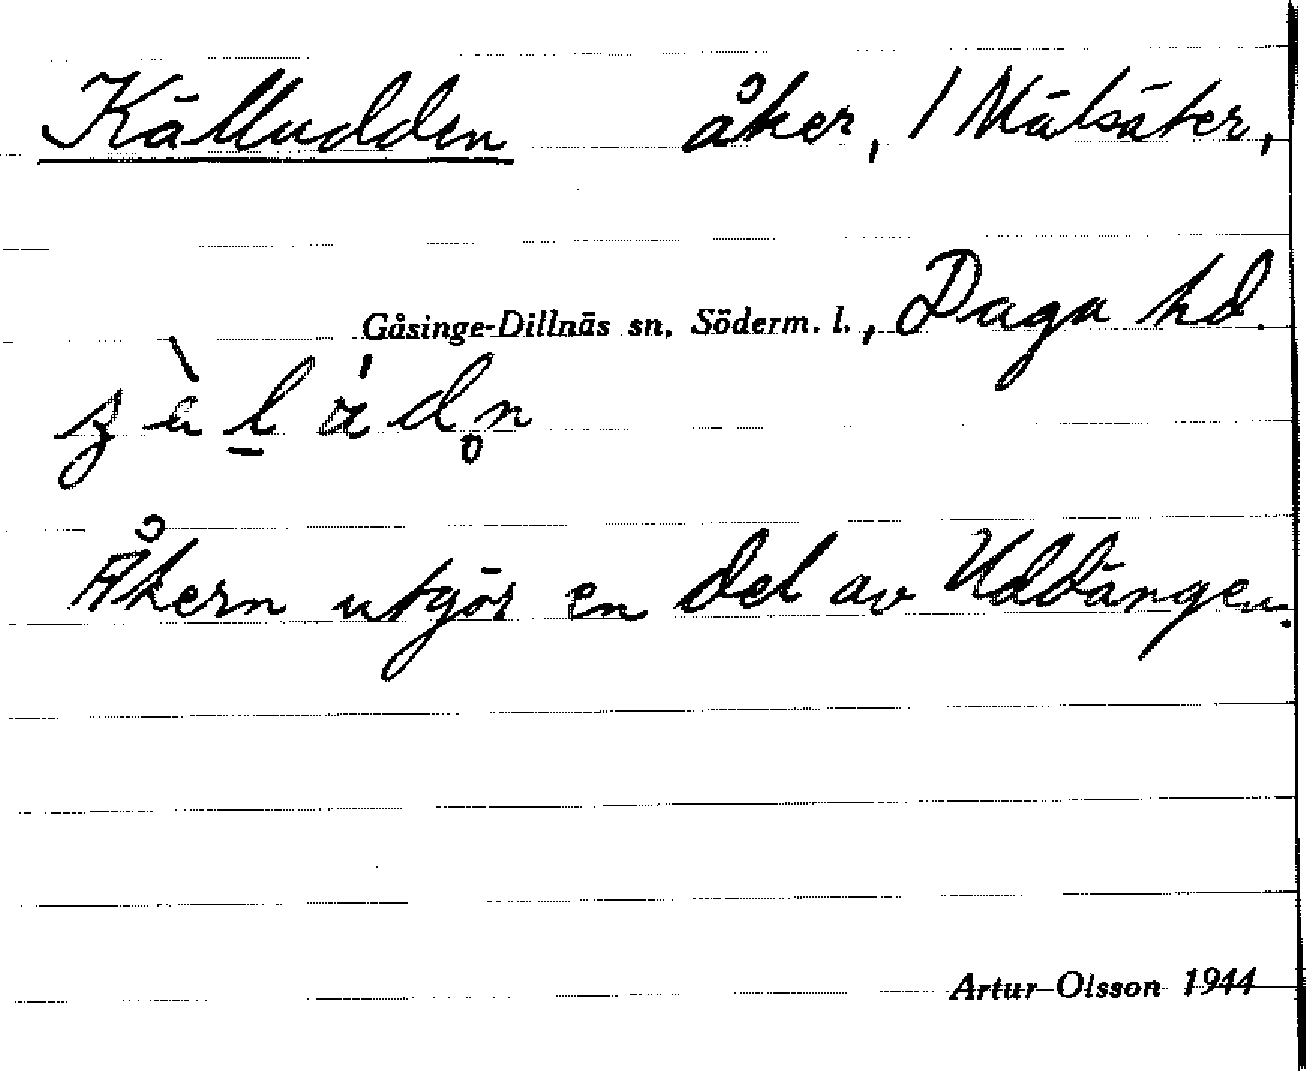 Källudden åker, / Mälsäter,
Gåsinge-Dillnäs sn. Söderm. l., Daga hd.
Åkern utgör en del av Uddängen.
Artur Olsson 1944